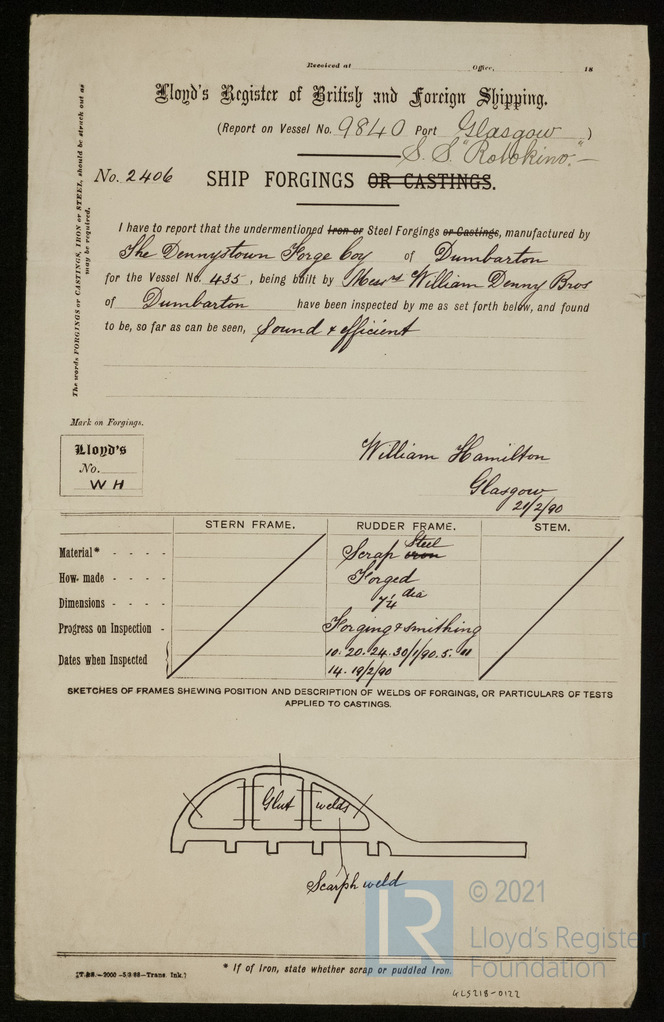 Received at Office, 18
Lloyd's Register of British and Foreign Shipping.
(Report on Vessel No. 9840 Port Glasgow)
S.S. "Rotokino."—
No. 2406 SHIP FORGINGS OR CASTINGS.
The words FORGINGS or CASTINGS, IRON or STEEL, should be struck out as
may be required.
I have to report that the undermentioned Iron or Steel Forgings or Castings, manufactured by
The Dennystown Forge Coy of Dumbarton
for the Vessel No. 435, being built by Messrs William Denny Bros
of Dumbarton have been inspected by me as set forth below, and found
to be, so far as can be seen, Sound & efficient
Mark on Forgings.
Lloyd's
No.
W H
William Hamilton
Glasgow
21/2/90
STERN FRAME. RUDDER FRAME. STEM.
Material* - - - - Scrap iron Steel
How made - - - - Forged
Dimensions - - - - 7¼ dia
Progress on Inspection - Forging & smithing
Dates when Inspected { 10. 20. 24. 30/1/90. 5. 11
14. 19/2/90
SKETCHES OF FRAMES SHEWING POSITION AND DESCRIPTION OF WELDS OF FORGINGS, OR PARTICULARS OF TESTS
APPLIED TO CASTINGS.
Glut welds
Scarph weld
© 2021
LR
Lloyd's Register
Foundation
* If of Iron, state whether scrap or puddled Iron.
—Trans. Ink.]
GLS218-0122